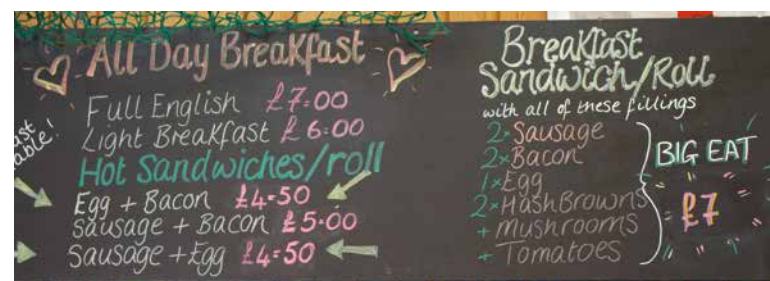 All Day Breakfast
Full English £7.00
Light Breakfast £6.00
Hot Sandwiches/roll
Egg + Bacon £4.50
Sausage + Bacon £5.00
Sausage + Egg £4.50
Breakfast
Sandwich/Roll
with all of these fillings
2x Sausage
2x Bacon
1x Egg
2x Hash Browns
+ Mushrooms
+ Tomatoes
BIG EAT
£7